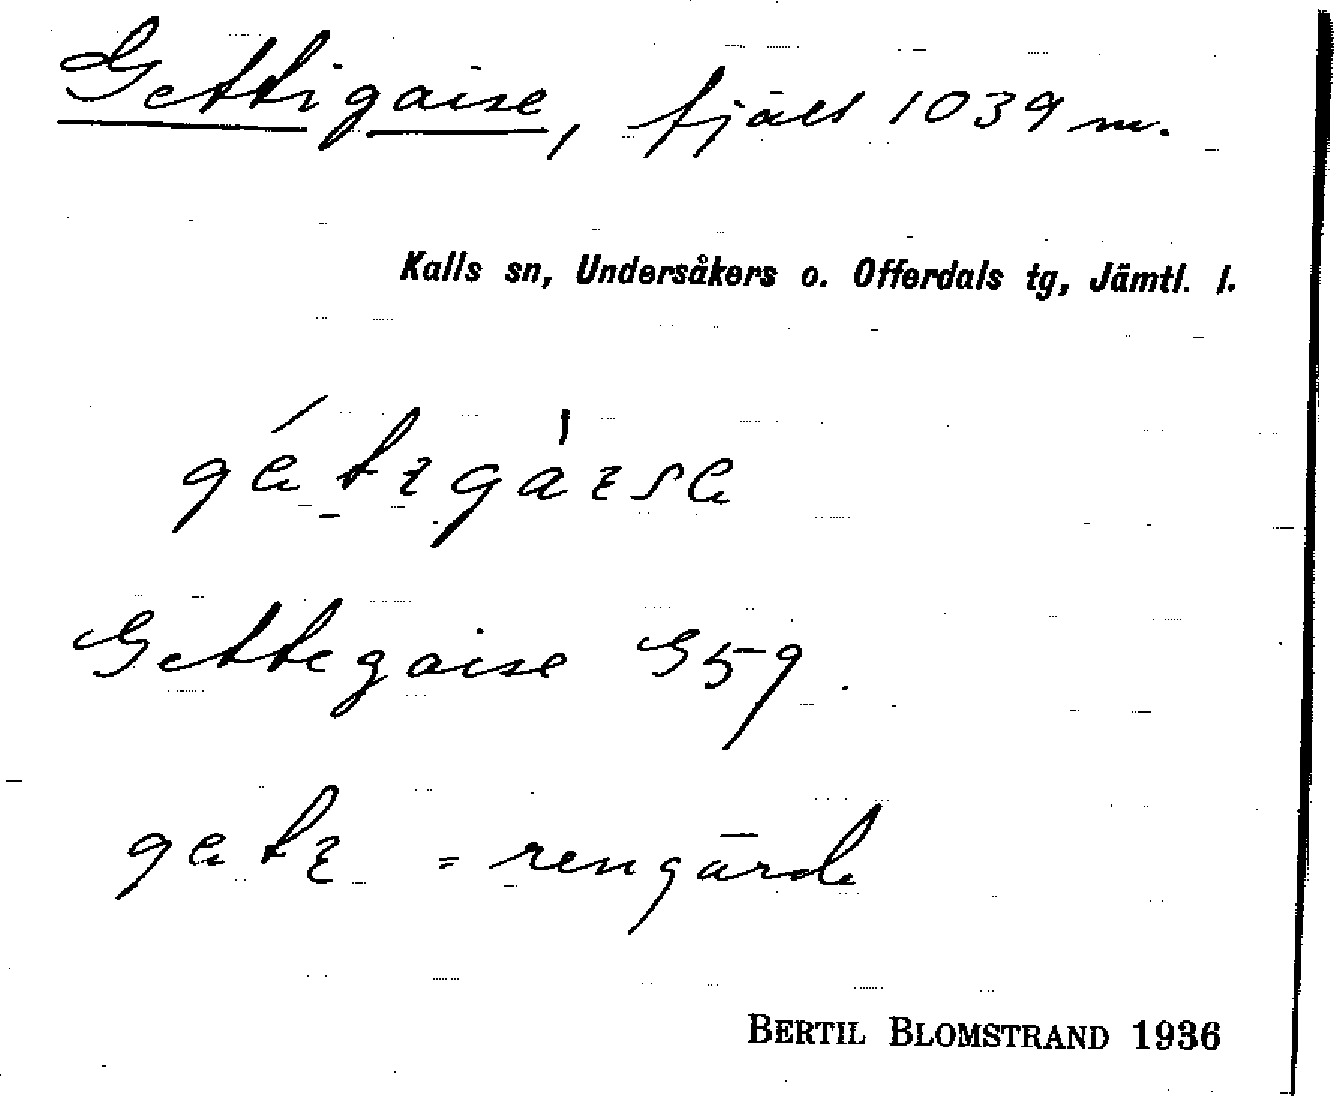 Gettigaise, fjäll 1039 m.
Kalls sn, Undersåkers o. Offerdals tg, Jämtl. l.
Gettegaise G59
= rengärde
BERTIL BLOMSTRAND 1936